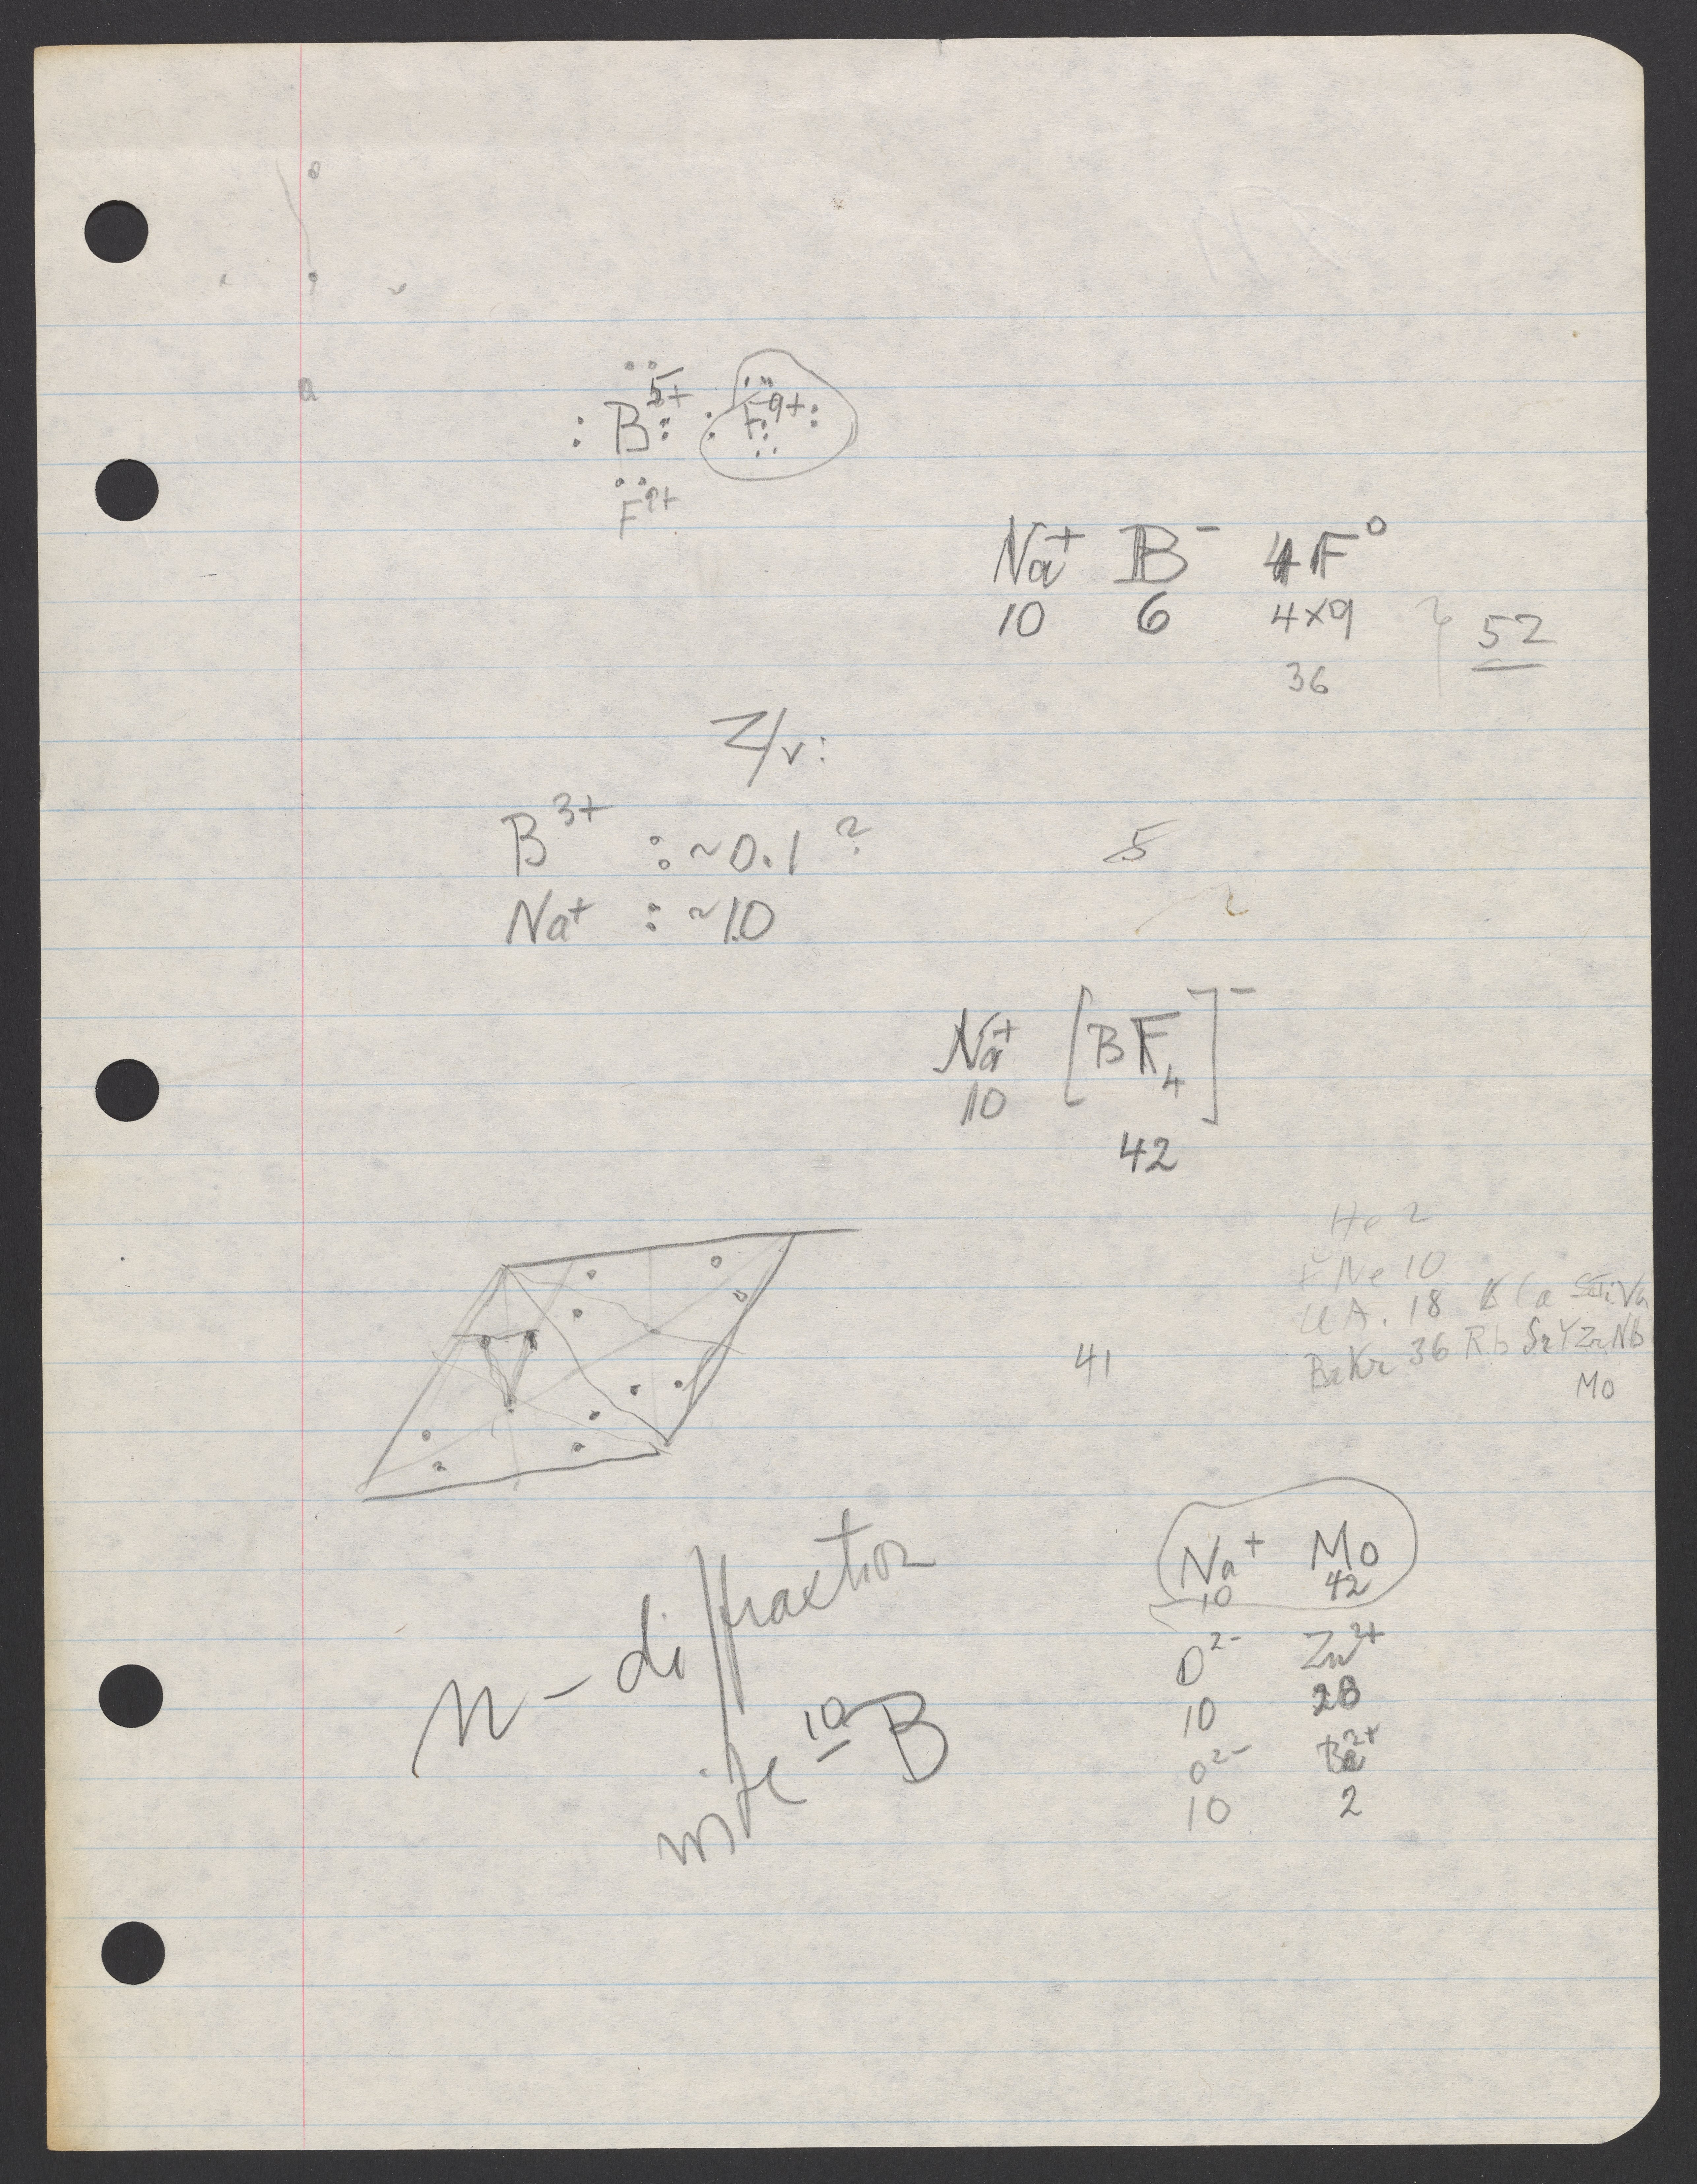 B⁵⁺ F⁹⁺
F⁹⁺
Na⁺ B⁻ 4F⁰
10 6 4×9 52
36
Z/r:
B³⁺ : ~0.1 ?
5
Na⁺ : ~1.0
Na⁺ [BF₄]⁻
10
42
He 2
Ne 10
A. 18 K Ca Sc Ti V
Kr 36 Rb Sr Y Zr Nb
41
Mo
n-diffraction
¹⁰B
Na⁺ Mo
10 42
O²⁻ Zn²⁺
10 28
O²⁻ Be²⁺
10 2